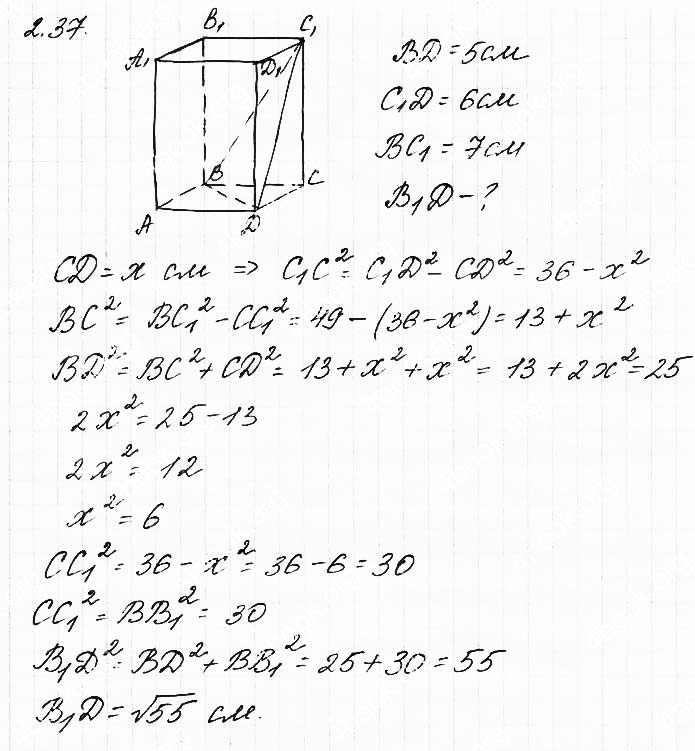 2.37.
B₁ C₁
A₁ D₁
B C
A D
BD = 5 см
C₁D = 6 см
BC₁ = 7 см
B₁D - ?
CD = x см => C₁C² = C₁D² - CD² = 36 - x²
BC² = BC₁² - CC₁² = 49 - (36 - x²) = 13 + x²
BD² = BC² + CD² = 13 + x² + x² = 13 + 2x² = 25
2x² = 25 - 13
2x² = 12
x² = 6
CC₁² = 36 - x² = 36 - 6 = 30
CC₁² = BB₁² = 30
B₁D² = BD² + BB₁² = 25 + 30 = 55
B₁D = √55 см.